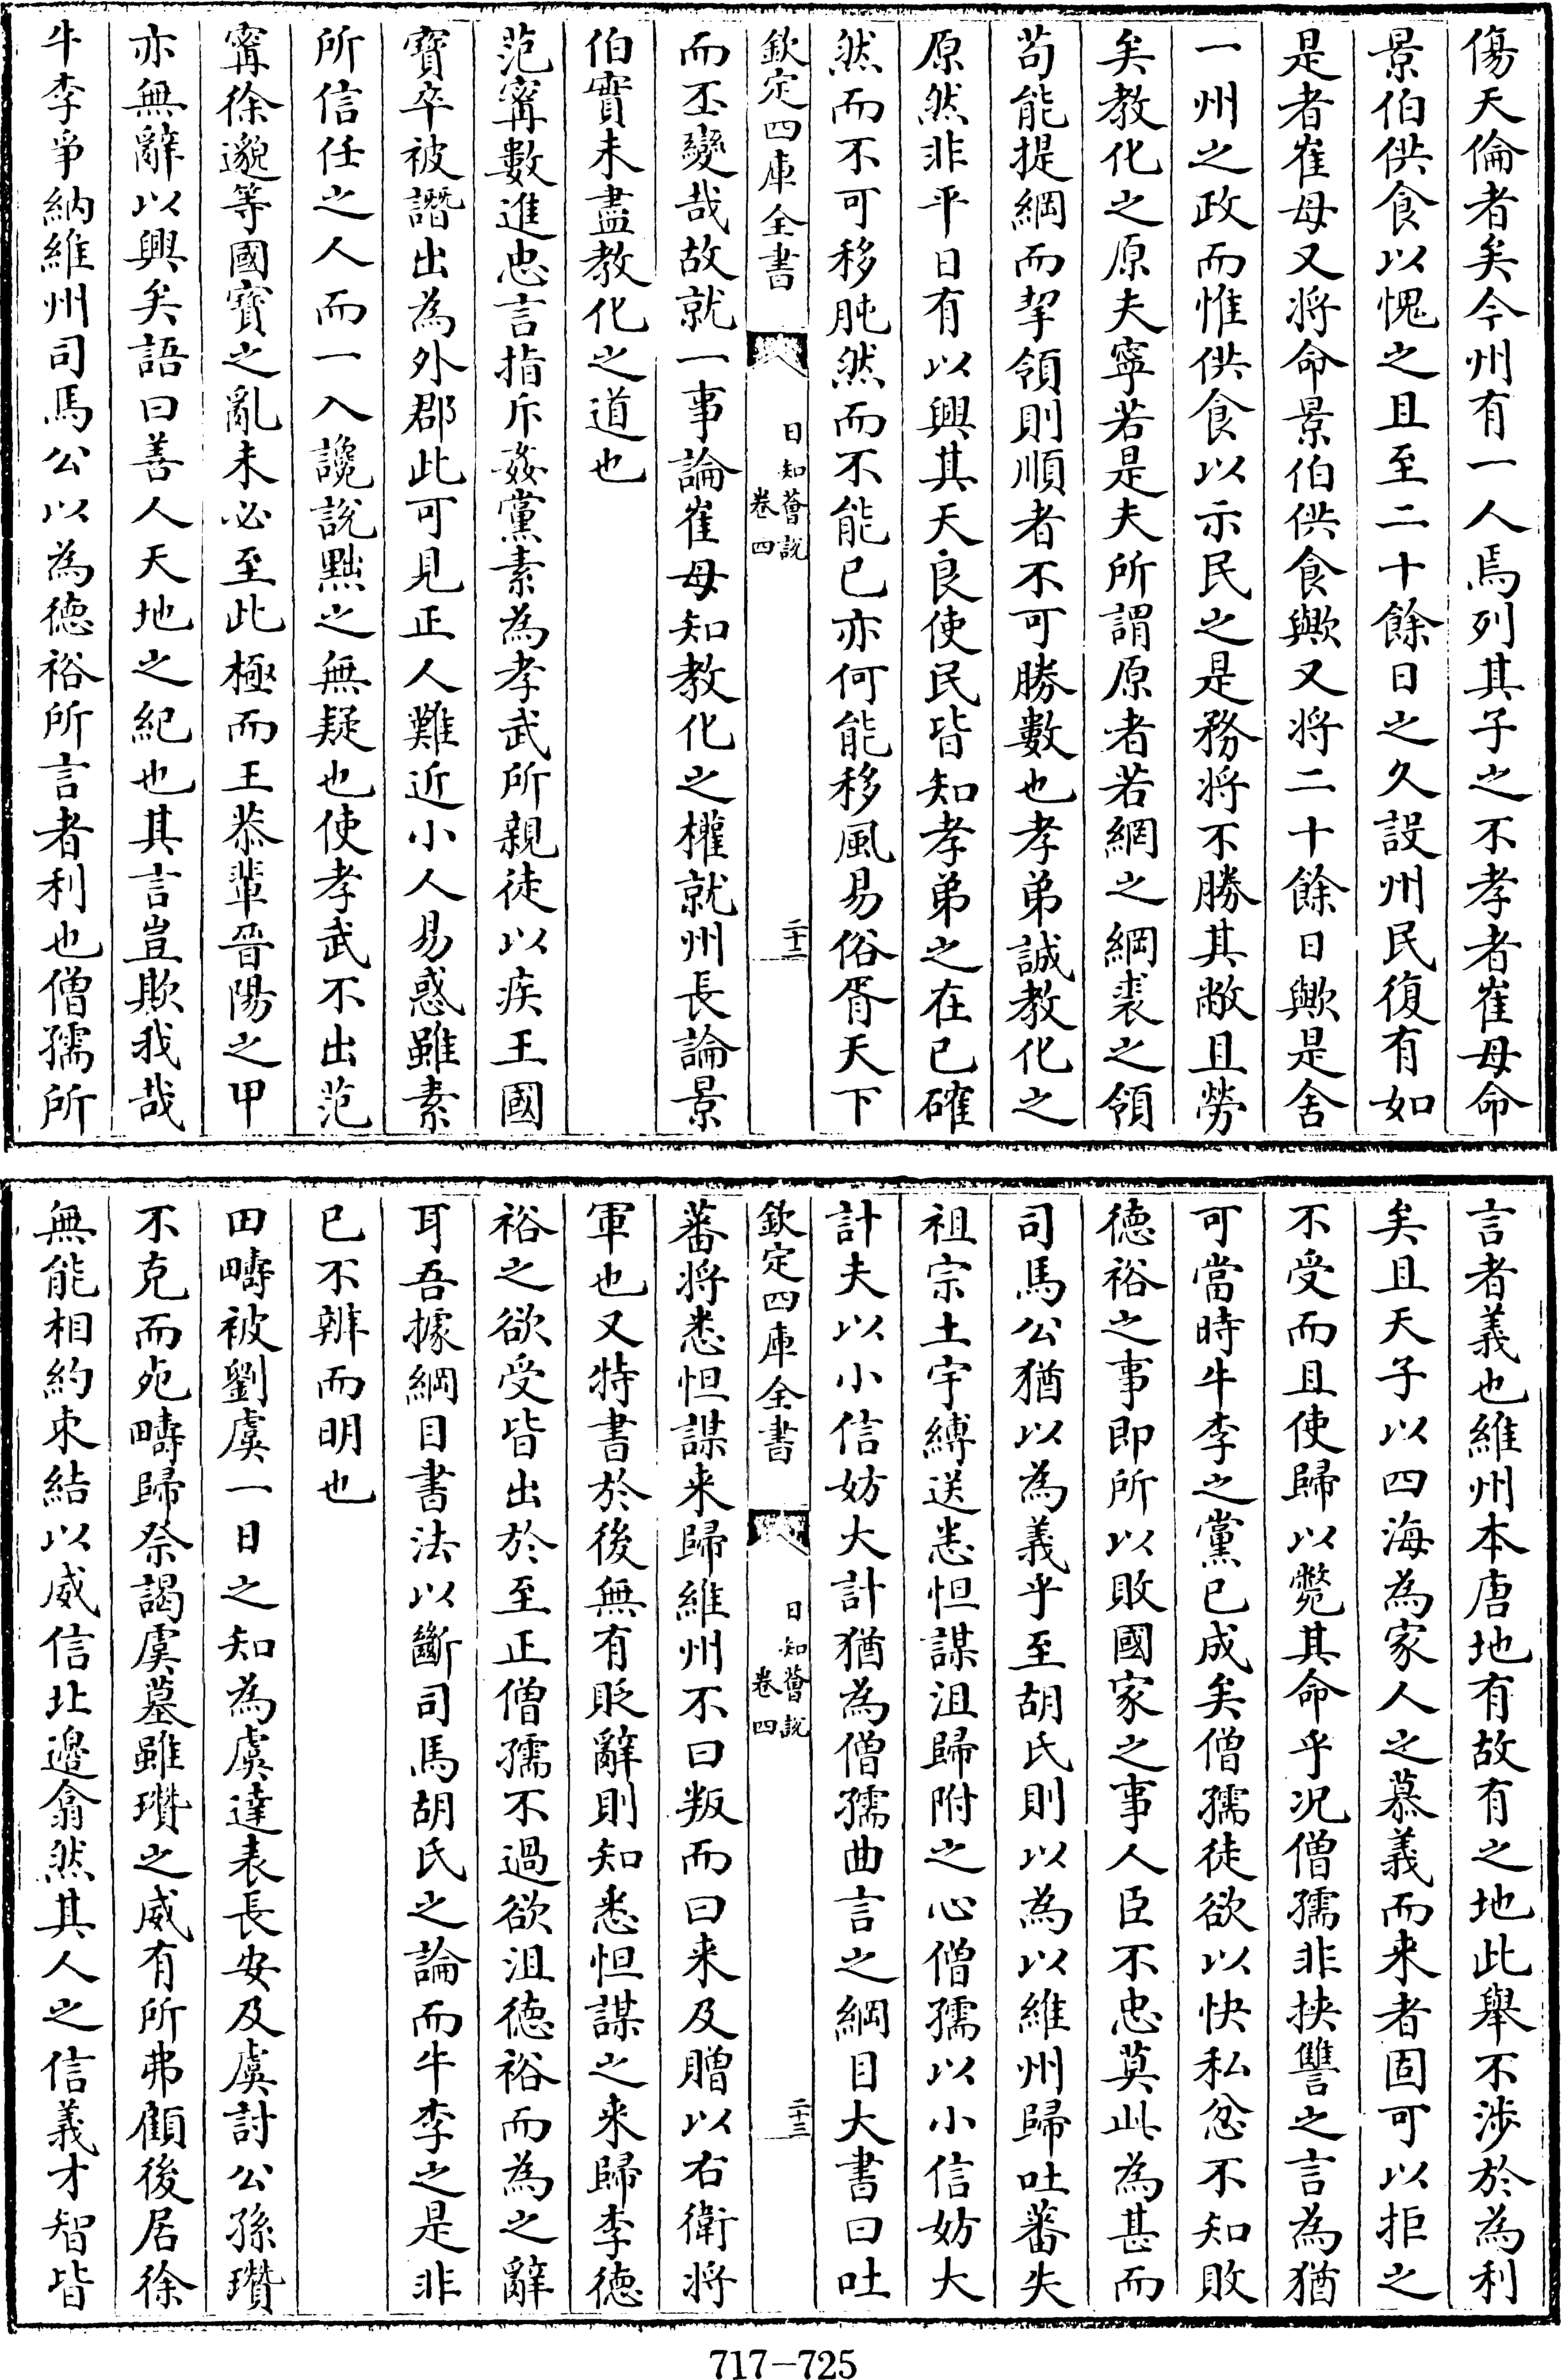 傷天倫者矣今州有一人焉列其子之不孝者崔母命
景伯供食以愧之且至二十餘日之久設州民復有如
是者崔母又将命景伯供食歟又将二十餘日歟是舍
一州之政而惟供食以示民之是務将不勝其敝且勞
矣教化之原夫寧若是夫所謂原者若網之綱裘之領
苟能提綱而挈領則順者不可勝數也孝弟誠教化之
原然非平日有以興其天良使民皆知孝弟之在已確
然而不可移肫然而不能已亦何能移風易俗胥天下
欽定四庫全書
日知薈説
卷四
二十二
而丕變哉故就一事論崔母知教化之權就州長論景
伯實未盡教化之道也
范寗數進忠言指斥姦黨素為孝武所親徒以疾王國
寶卒被譖出為外郡此可見正人難近小人易惑雖素
所信任之人而一入讒説黜之無疑也使孝武不出范
寗徐邈等國寶之亂未必至此極而王恭輩晉陽之甲
亦無辭以興矣語曰善人天地之紀也其言豈欺我哉
牛李爭納維州司馬公以為徳裕所言者利也僧孺所
言者義也維州本唐地有故有之地此舉不涉於為利
矣且天子以四海為家人之慕義而来者固可以拒之
不受而且使歸以斃其命乎况僧孺非挾讐之言為猶
可當時牛李之黨已成矣僧孺徒欲以快私忿不知敗
徳裕之事即所以敗國家之事人臣不忠莫此為甚而
司馬公猶以為義乎至胡氏則以為以維州歸吐蕃失
祖宗土宇縛送悉怛謀沮歸附之心僧孺以小信妨大
計夫以小信妨大計猶為僧孺曲言之綱目大書曰吐
欽定四庫全書
日知薈説
卷四
二十三
蕃将悉怛謀来歸維州不曰叛而曰来及贈以右衛将
軍也又特書於後無有貶辭則知悉怛謀之来歸李徳
裕之欲受皆出於至正僧孺不過欲沮徳裕而為之辭
耳吾據綱目書法以斷司馬胡氏之論而牛李之是非
已不辨而明也
田疇被劉虞一日之知為虞達表長安及虞討公孫瓚
不克而死疇歸祭謁虞墓雖瓚之威有所弗顧後居徐
無能相約束結以威信北邊翕然其人之信義才智皆
717-725